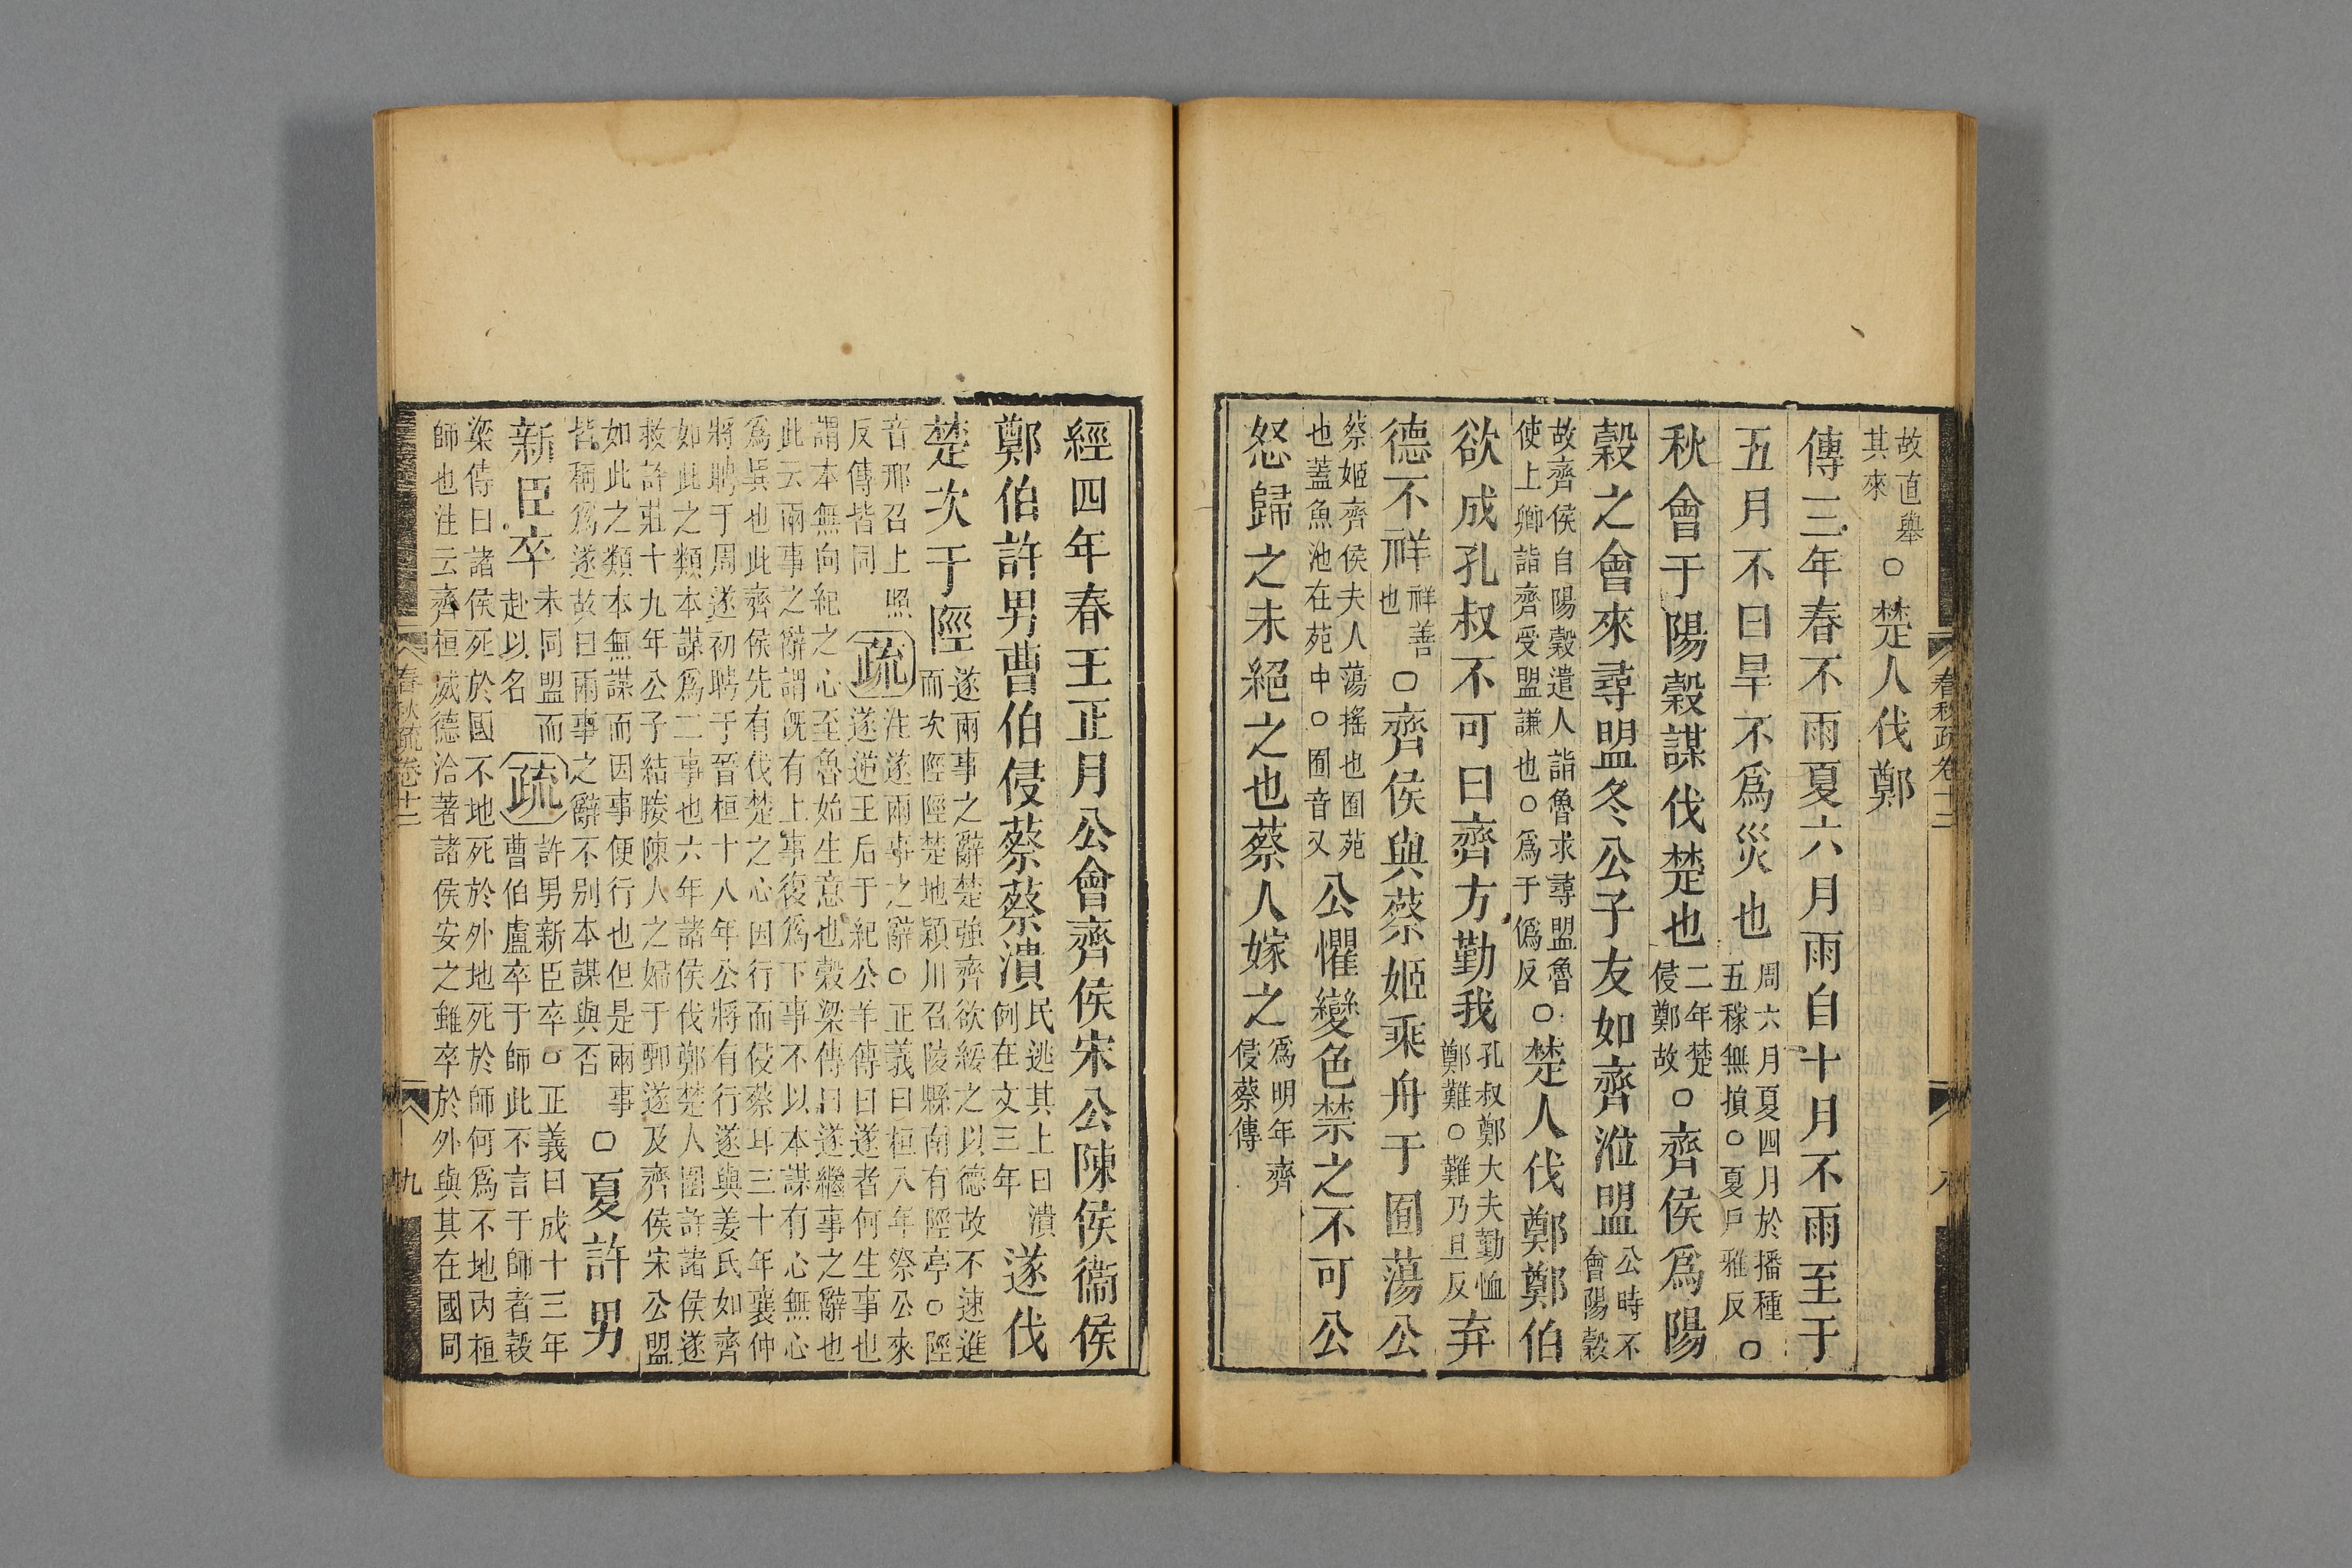 春秋疏卷十二 八
故直舉
其來
○楚人伐鄭
傳三年春不雨夏六月雨自十月不雨至于
五月不曰旱不爲災也
周六月夏四月於播種
五稼無損○夏戶雅反
○
秋會于陽穀謀伐楚也
二年楚
侵鄭故
○齊侯爲陽
穀之會來尋盟冬公子友如齊涖盟
公時不
會陽穀
故齊侯自陽穀遣人詣魯求尋盟魯
使上卿詣齊受盟謙也○爲于僞反
○楚人伐鄭鄭伯
欲成孔叔不可曰齊方勤我
孔叔鄭大夫勤恤
鄭難○難乃旦反
弃
德不祥
祥善
也
○齊侯與蔡姬乘舟于囿蕩公
蔡姬齊侯夫人蕩搖也囿苑
也蓋魚池在苑中○囿音又
公懼變色禁之不可公
怒歸之未絕之也蔡人嫁之
爲明年齊
侵蔡傳
經四年春王正月公會齊侯宋公陳侯衞侯
鄭伯許男曹伯侵蔡蔡潰
民逃其上曰潰
例在文三年
遂伐
楚次于陘
遂兩事之辭楚強齊欲綏之以德故不速進
而次陘陘楚地潁川召陵縣南有陘亭○陘
音邢召上照
反傳皆同
疏
注遂兩事之辭○正義曰桓八年祭公來
遂逆王后于紀公羊傳曰遂者何生事也
謂本無向紀之心至魯始生意也穀梁傳曰遂繼事之辭也
此云兩事之辭謂旣有上事復爲下事不以本謀有心無心
爲異也此齊侯先有伐楚之心因行而侵蔡耳三十年襄仲
將聘于周遂初聘于晉桓十八年公將有行遂與姜氏如齊
如此之類本謀爲二事也六年諸侯伐鄭楚人圍許諸侯遂
救許莊十九年公子結媵陳人之婦于鄄遂及齊侯宋公盟
如此之類本無謀而因事便行也但是兩事
皆稱爲遂故曰兩事之辭不別本謀與否
○夏許男
新臣卒
未同盟而
赴以名
疏
許男新臣卒○正義曰成十三年
曹伯盧卒于師此不言于師者穀
梁傳曰諸侯死於國不地死於外地死於師何爲不地内桓
師也注云齊桓威德洽著諸侯安之雖卒於外與其在國同
春秋疏卷十二 九